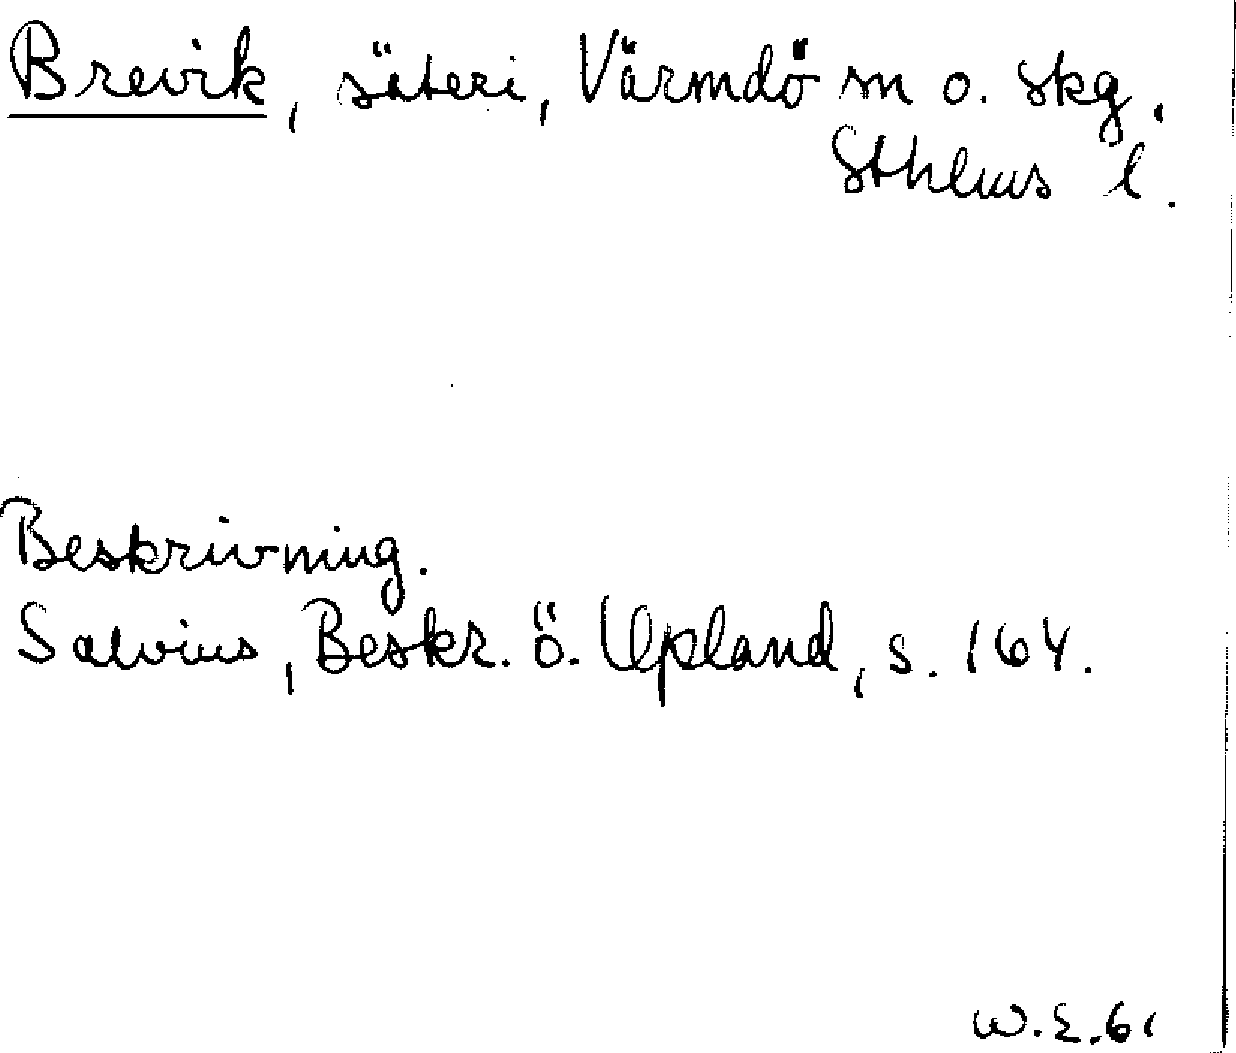 Brevik, säteri, Värmdö sn o. skg,
Sthlms l.
Beskrivning.
Salvius, Beskr. ö. Upland, s. 164.
W.E.61